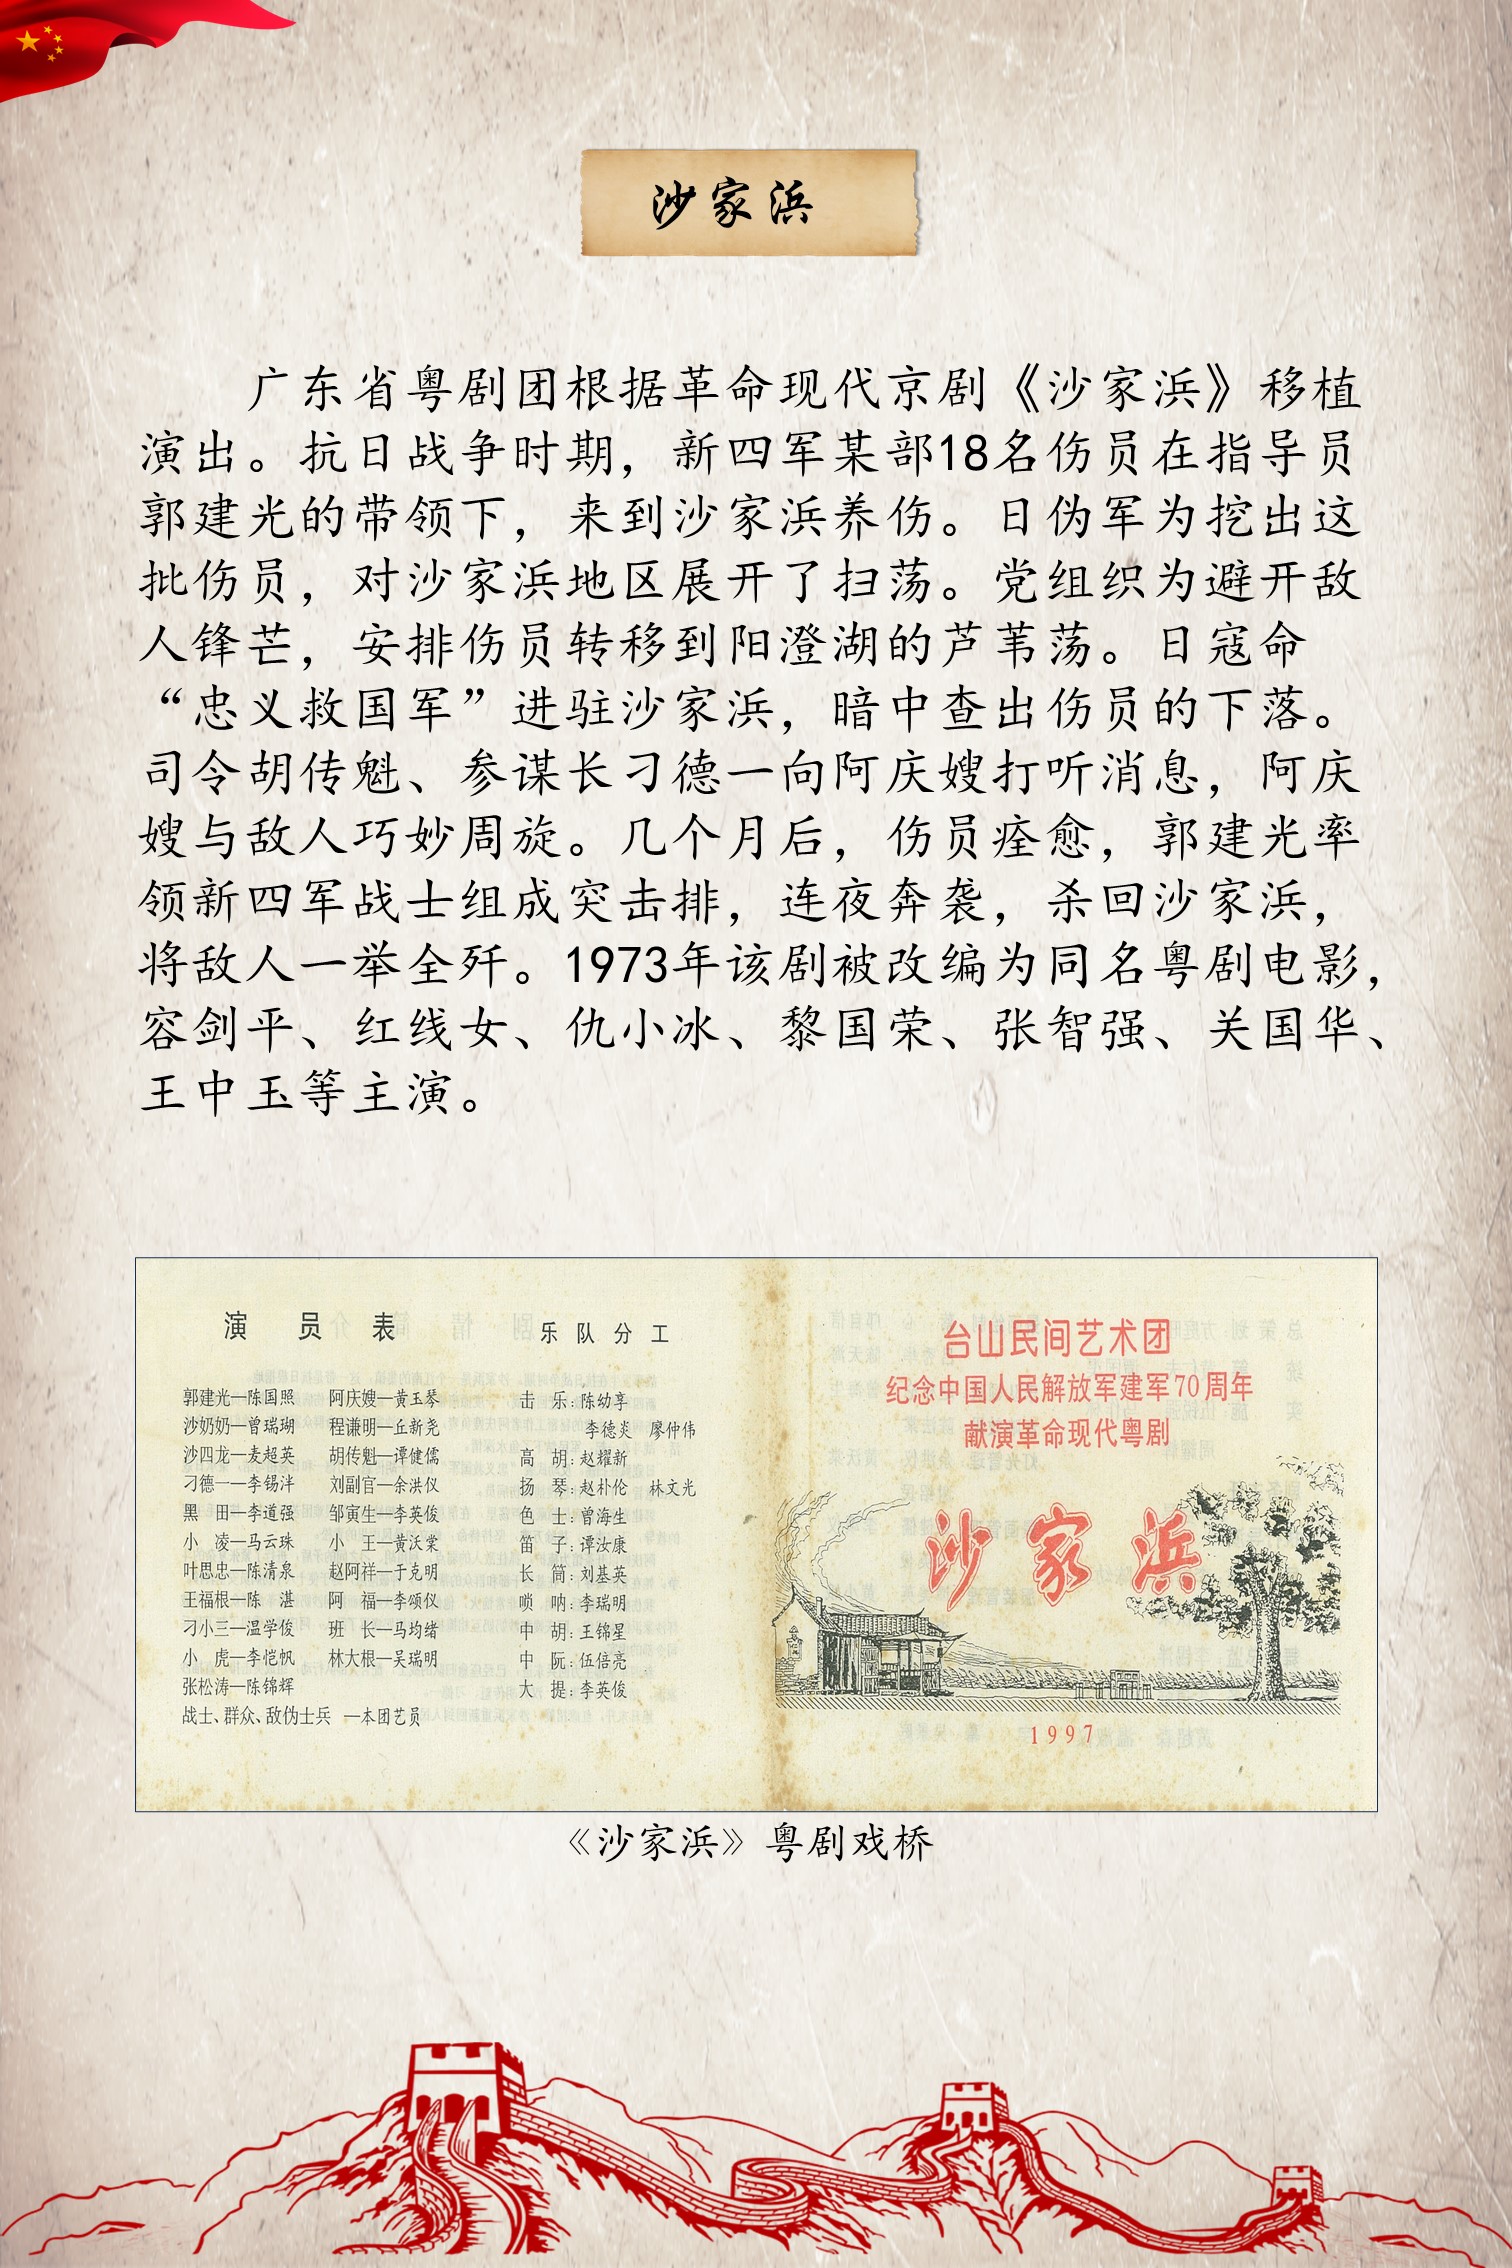 沙家浜
广东省粤剧团根据革命现代京剧《沙家浜》移植
演出。抗日战争时期，新四军某部18名伤员在指导员
郭建光的带领下，来到沙家浜养伤。日伪军为挖出这
批伤员，对沙家浜地区展开了扫荡。党组织为避开敌
人锋芒，安排伤员转移到阳澄湖的芦苇荡。日寇命
“忠义救国军”进驻沙家浜，暗中查出伤员的下落。
司令胡传魁、参谋长刁德一向阿庆嫂打听消息，阿庆
嫂与敌人巧妙周旋。几个月后，伤员痊愈，郭建光率
领新四军战士组成突击排，连夜奔袭，杀回沙家浜，
将敌人一举全歼。1973年该剧被改编为同名粤剧电影，
容剑平、红线女、仇小冰、黎国荣、张智强、关国华、
王中玉等主演。
演 员 表
郭建光—陈国照 阿庆嫂—黄玉琴
沙奶奶—曾瑞瑚 程谦明—丘新尧
沙四龙—麦超英 胡传魁—谭健儒
刁德一—李锡泮 刘副官—余洪仪
黑 田—李道强 邹寅生—李英俊
小 凌—马云珠 小 王—黄沃棠
叶思忠—陈清泉 赵阿祥—于克明
王福根—陈 湛 阿 福—李颂仪
刁小三—温学俊 班 长—马均绪
小 虎—李恺帆 林大根—吴瑞明
张松涛—陈锦辉
战士、群众、敌伪士兵 —本团艺员
乐 队 分 工
击 乐：陈幼享
李德炎 廖仲伟
高 胡：赵耀新
扬 琴：赵朴伦 林文光
色 士：曾海生
笛 子：谭汝康
长 筒：刘基英
唢 呐：李瑞明
中 胡：王锦星
中 阮：伍倍亮
大 提：李英俊
台山民间艺术团
纪念中国人民解放军建军70周年
献演革命现代粤剧
沙家浜
1997
《沙家浜》粤剧戏桥